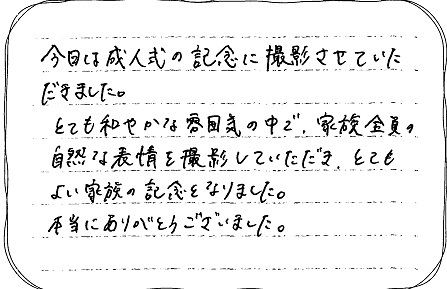 今日は成人式の記念に撮影させていた
だきました。
とても和やかな雰囲気の中で、家族全員の
自然な表情を撮影していただき、とても
よい家族の記念となりました。
本当にありがとうございました。